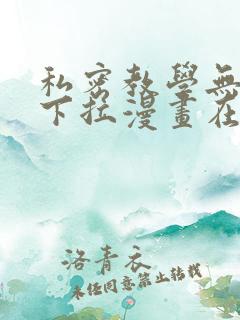 私密教學無
下拉漫畫在
洛青衣
未经同意禁止转载